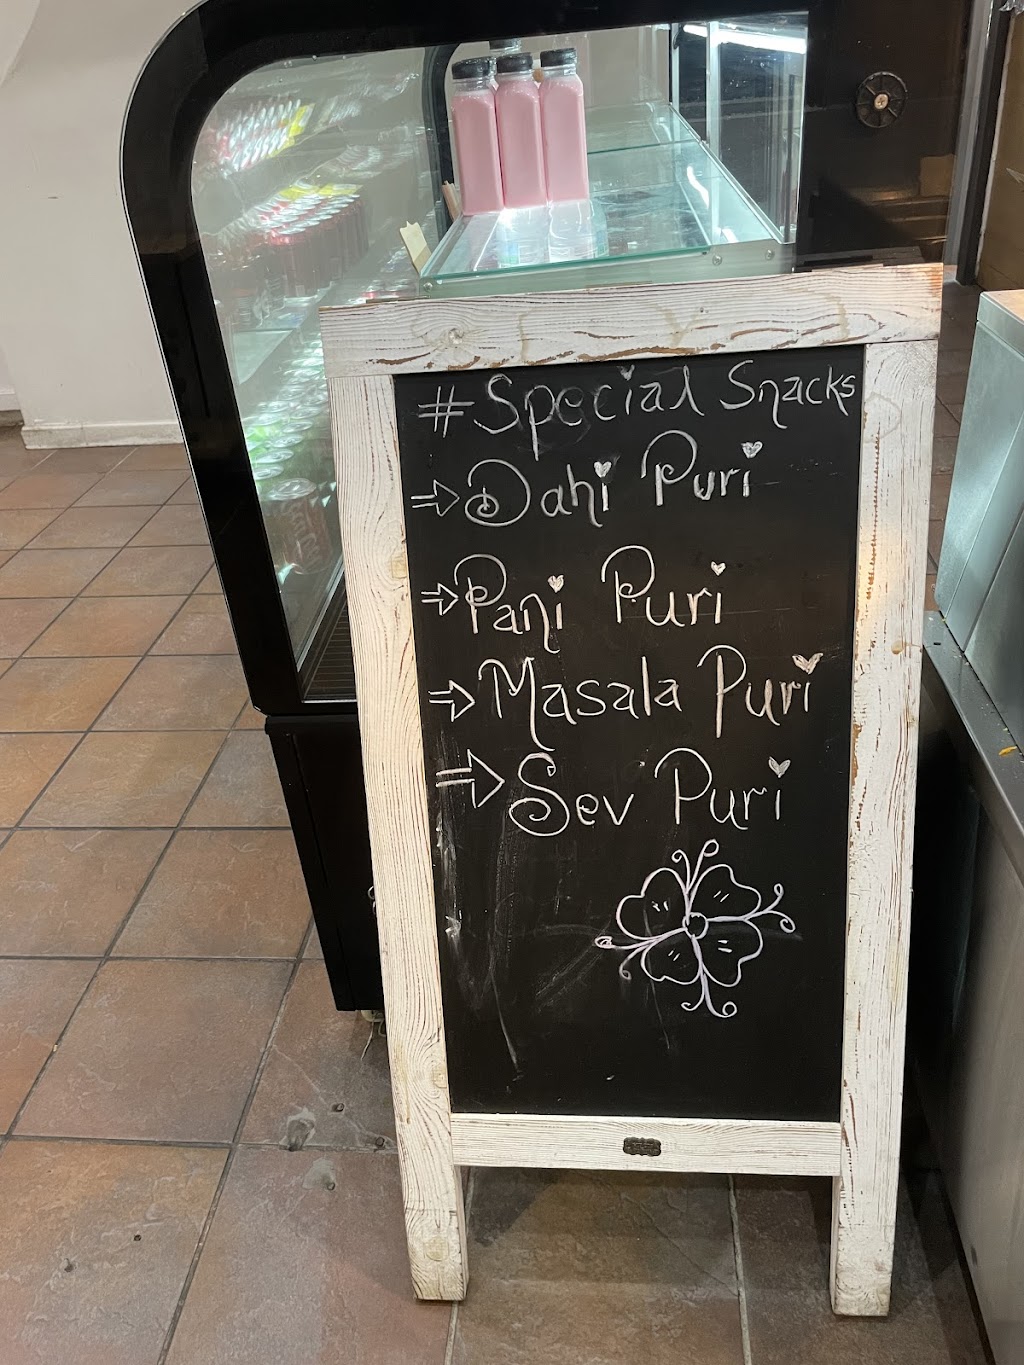 # Special Snacks
⇒ Dahi Puri
⇒ Pani Puri
⇒ Masala Puri
⇒ Sev Puri